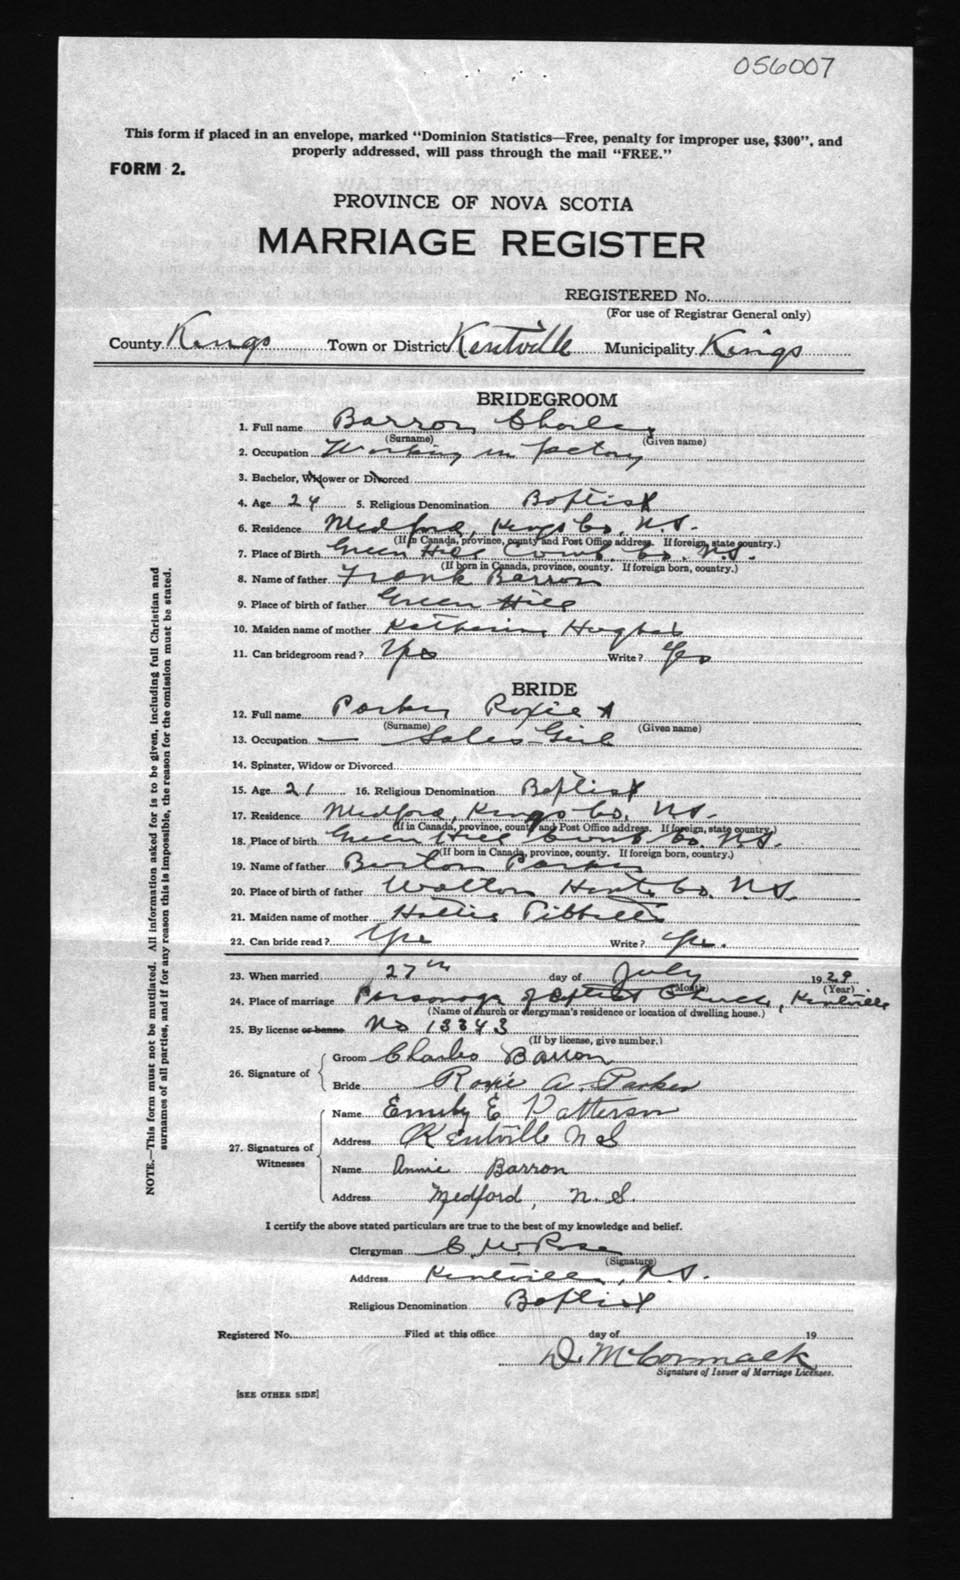 056007
This form if placed in an envelope, marked "Dominion Statistics—Free, penalty for improper use, $300", and
properly addressed, will pass through the mail "FREE."
FORM 2.
PROVINCE OF NOVA SCOTIA
MARRIAGE REGISTER
REGISTERED No.
(For use of Registrar General only)
County Kings Town or District Kentville Municipality Kings
BRIDEGROOM
1. Full name Barron, Charles
(Surname) (Given name)
2. Occupation Working in factory
3. Bachelor, Widower or Divorced
4. Age 24 5. Religious Denomination Baptist
6. Residence Medford, Kings Co, N.S.
(If in Canada, province, county and Post Office address. If foreign, state country.)
7. Place of Birth Green Hill Cumb Co. N.S.
(If born in Canada, province, county. If foreign born, country.)
8. Name of father Frank Barron
9. Place of birth of father Green Hill
10. Maiden name of mother Hughes
11. Can bridegroom read? Yes Write? Yes
BRIDE
12. Full name Parker Roxie A
(Surname) (Given name)
13. Occupation — Sales Girl
14. Spinster, Widow or Divorced
15. Age 21 16. Religious Denomination Baptist
17. Residence Medford, Kings Co, N.S.
(If in Canada, province, county and Post Office address. If foreign, state country.)
18. Place of birth Green Hill Cumb Co. N.S.
(If born in Canada, province, county. If foreign born, country.)
19. Name of father Burton Parker
20. Place of birth of father Walton Hants Co. N.S.
21. Maiden name of mother Hattie
22. Can bride read? Yes Write? Yes.
23. When married 27th day of July 1929
(Month) (Year)
24. Place of marriage Parsonage Baptist Church, Kentville
(Name of church or clergyman's residence or location of dwelling house.)
25. By license or banns No 13343
(If by license, give number.)
26. Signature of
Groom Charles Barron
Bride Roxie A. Parker
27. Signatures of Witnesses
Name Emily E Patterson
Address Kentville N S
Name Annie Barron
Address Medford, N. S.
I certify the above stated particulars are true to the best of my knowledge and belief.
Clergyman C. W. Rose
(Signature)
Address Kentville, N.S.
Religious Denomination Baptist
Registered No. Filed at this office day of 19
D. McCormack
Signature of Issuer of Marriage Licenses.
[SEE OTHER SIDE]
NOTE.—This form must not be mutilated. All information asked for is to be given, including full Christian and
surnames of all parties, and if for any reason this is impossible, the reason for the omission must be stated.